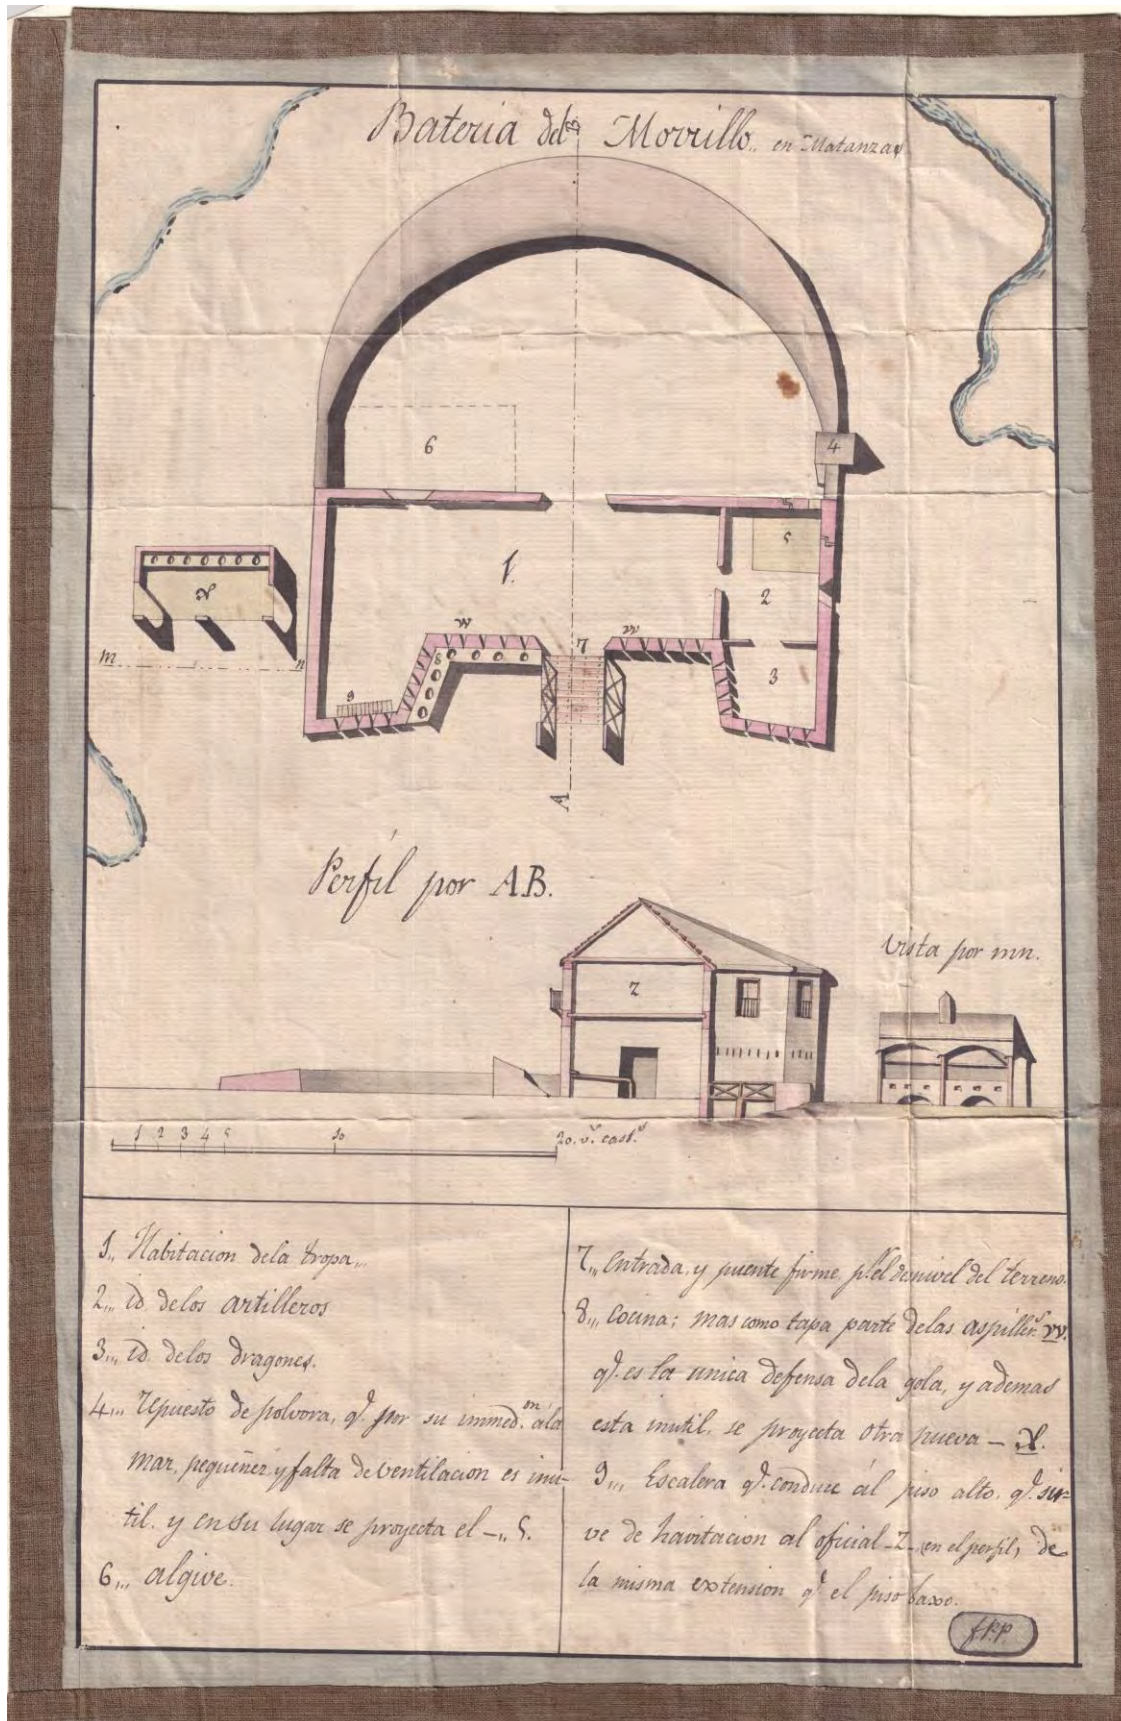 Bateria del Morrillo,, en Matanzas
B
6
4
5
1.
2
W
7
vv
8
3
9
m
n
A
Perfil por A.B.
Vista por mn.
Z
1 2 3 4 5 10 20. v.s cast.s
1,, Habitacion dela tropa,,,
2,,, id. delos artilleros
3,,, id. delos dragones.
4,,, repuesto de polvora, q.e por su immed.on ála
mar, pequeñez, y falta de ventilacion es inu-
til. y en su lugar se proyecta el -,, 5.
6,,, algive.
7,,, entrada, y puente firme p.r el desnivel del terreno.
8,,, Cocina; mas como tapa parte delas aspiller.s vv.
q.e es la unica defensa dela gola, y ademas
esta inutil. se proyecta otra nueva -
9,,, Escalera q.e conduce ál piso alto. q.e sir=
ve de havitacion al oficial -Z- (en el perfil) de
la misma extension q.e el piso baxo.
f.R.P.